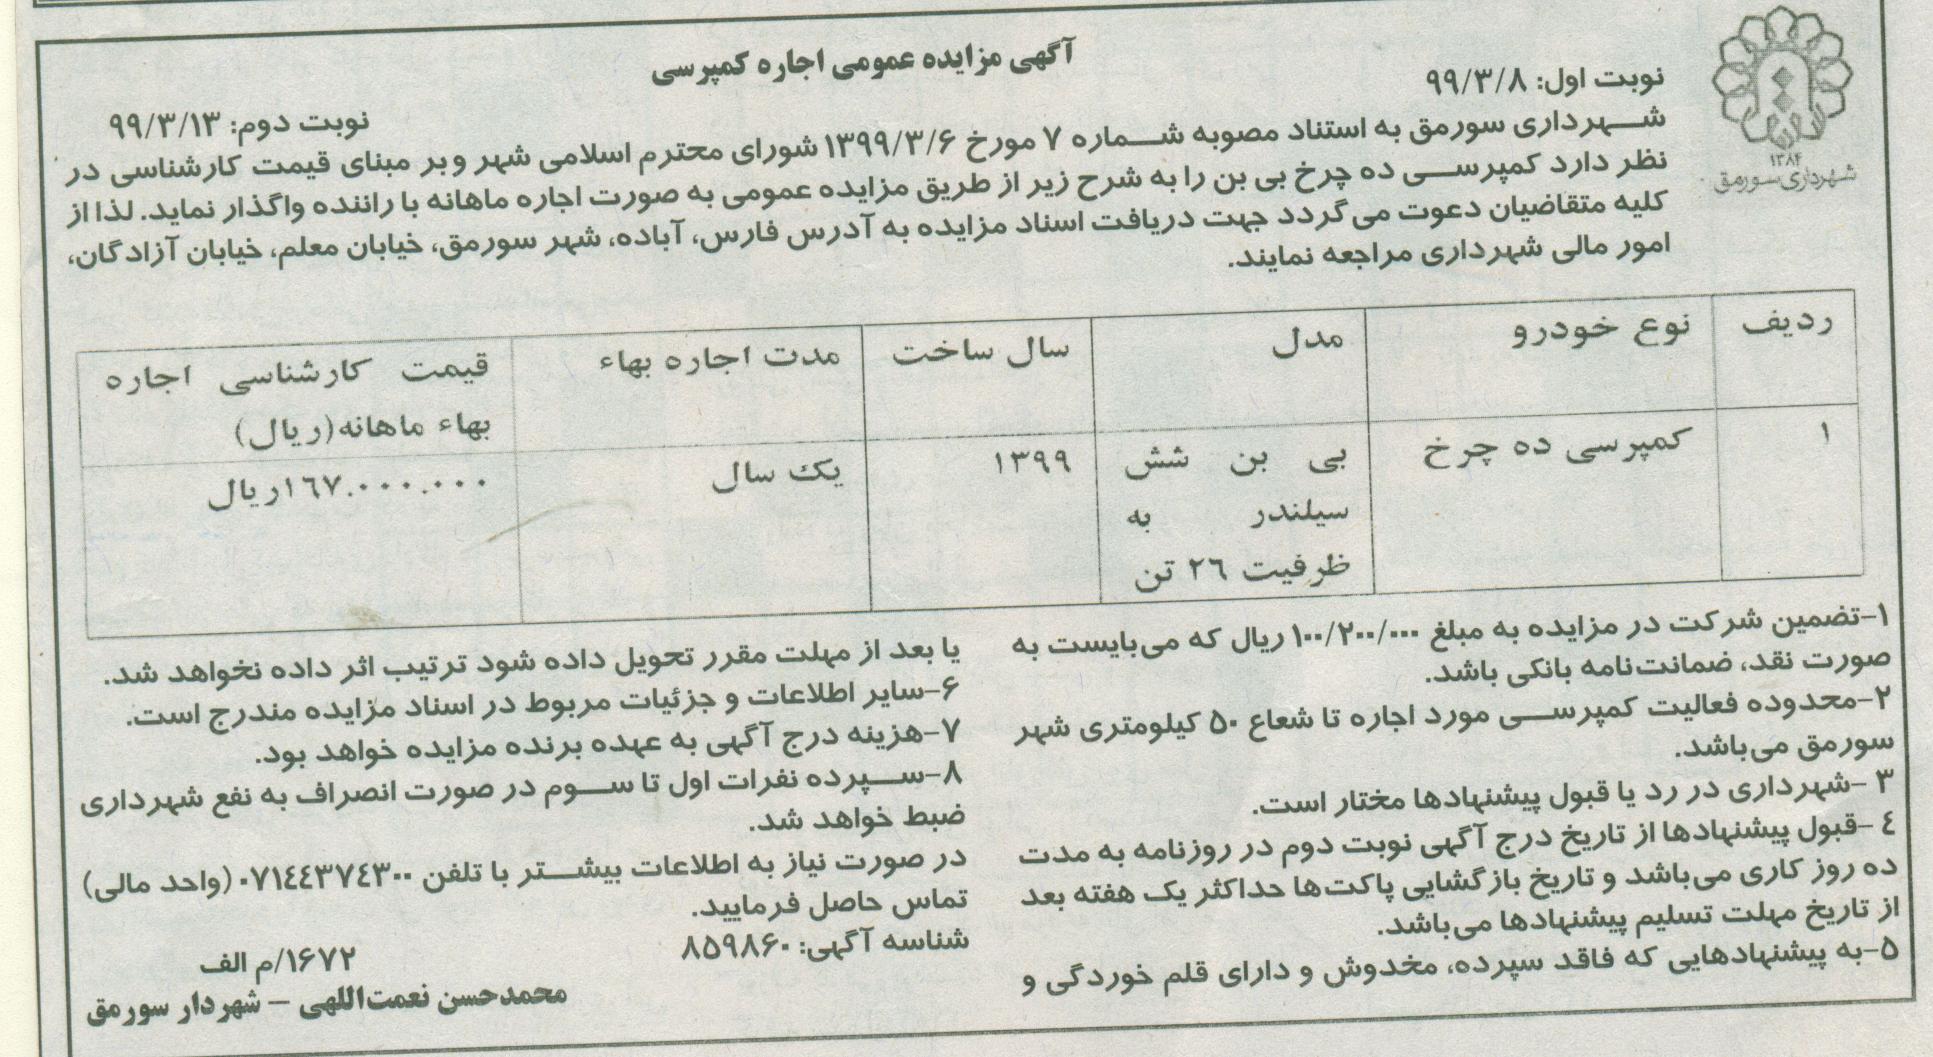 آگهی مزایده عمومی اجاره کمپرسی
نوبت اول: ۹۹/۳/۸
نوبت دوم: ۹۹/۳/۱۳
۱۳۸۴
شهرداری سورمق
شهرداری سورمق به استناد مصوبه شماره ۷ مورخ ۱۳۹۹/۳/۶ شورای محترم اسلامی شهر و بر مبنای قیمت کارشناسی در
نظر دارد کمپرسی ده چرخ بی بن را به شرح زیر از طریق مزایده عمومی به صورت اجاره ماهانه با راننده واگذار نماید. لذا از
کلیه متقاضیان دعوت می گردد جهت دریافت اسناد مزایده به آدرس فارس، آباده، شهر سورمق، خیابان معلم، خیابان آزادگان،
امور مالی شهرداری مراجعه نمایند.
ردیف
نوع خودرو
مدل
سال ساخت
مدت اجاره بهاء
قیمت کارشناسی اجاره
بهاء ماهانه(ریال)
۱
کمپرسی ده چرخ
بی بن شش
سیلندر به
ظرفیت ٢٦ تن
۱۳۹۹
یک سال
١٦٧.٠٠٠.٠٠٠ریال
۱-تضمین شرکت در مزایده به مبلغ ۱۰۰/۲۰۰/۰۰۰ ریال که می‌بایست به
صورت نقد، ضمانت‌نامه بانکی باشد.
۲-محدوده فعالیت کمپرسی مورد اجاره تا شعاع ۵۰ کیلومتری شهر
سورمق می‌باشد.
۳ -شهرداری در رد یا قبول پیشنهادها مختار است.
٤ -قبول پیشنهادها از تاریخ درج آگهی نوبت دوم در روزنامه به مدت
ده روز کاری می‌باشد و تاریخ بازگشایی پاکت‌ها حداکثر یک هفته بعد
از تاریخ مهلت تسلیم پیشنهادها می‌باشد.
۵-به پیشنهادهایی که فاقد سپرده، مخدوش و دارای قلم خوردگی و
یا بعد از مهلت مقرر تحویل داده شود ترتیب اثر داده نخواهد شد.
۶-سایر اطلاعات و جزئیات مربوط در اسناد مزایده مندرج است.
۷-هزینه درج آگهی به عهده برنده مزایده خواهد بود.
۸-سپرده نفرات اول تا سوم در صورت انصراف به نفع شهرداری
ضبط خواهد شد.
در صورت نیاز به اطلاعات بیشتر با تلفن ۰۷۱٤٤۳۷٤۳۰۰ (واحد مالی)
تماس حاصل فرمایید.
شناسه آگهی: ۸۵۹۸۶۰
۱۶۷۲/م الف
محمدحسن نعمت‌اللهی – شهردار سورمق